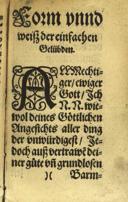 Form vnnd
weiß der einfachen
Gelübden.
ALLMechti-
ger/ ewiger
Gott/ Ich
N. N. wie-
wol deines Göttlichen
Angesichts aller ding
der vnwürdigest/ Je-
doch auß vertrawẽ dei-
ner güte vñ grundlosen
)( Barm-